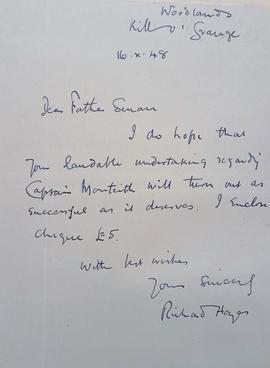 Woodlands
Kill o' Grange
16.x.48
Dear Father Senan
I do hope that
your laudable undertaking regarding
Captain Monteith will turn out as
successful as it deserves. I enclose
cheque £5.
With best wishes
Yours Sincerely
Richard Hayes